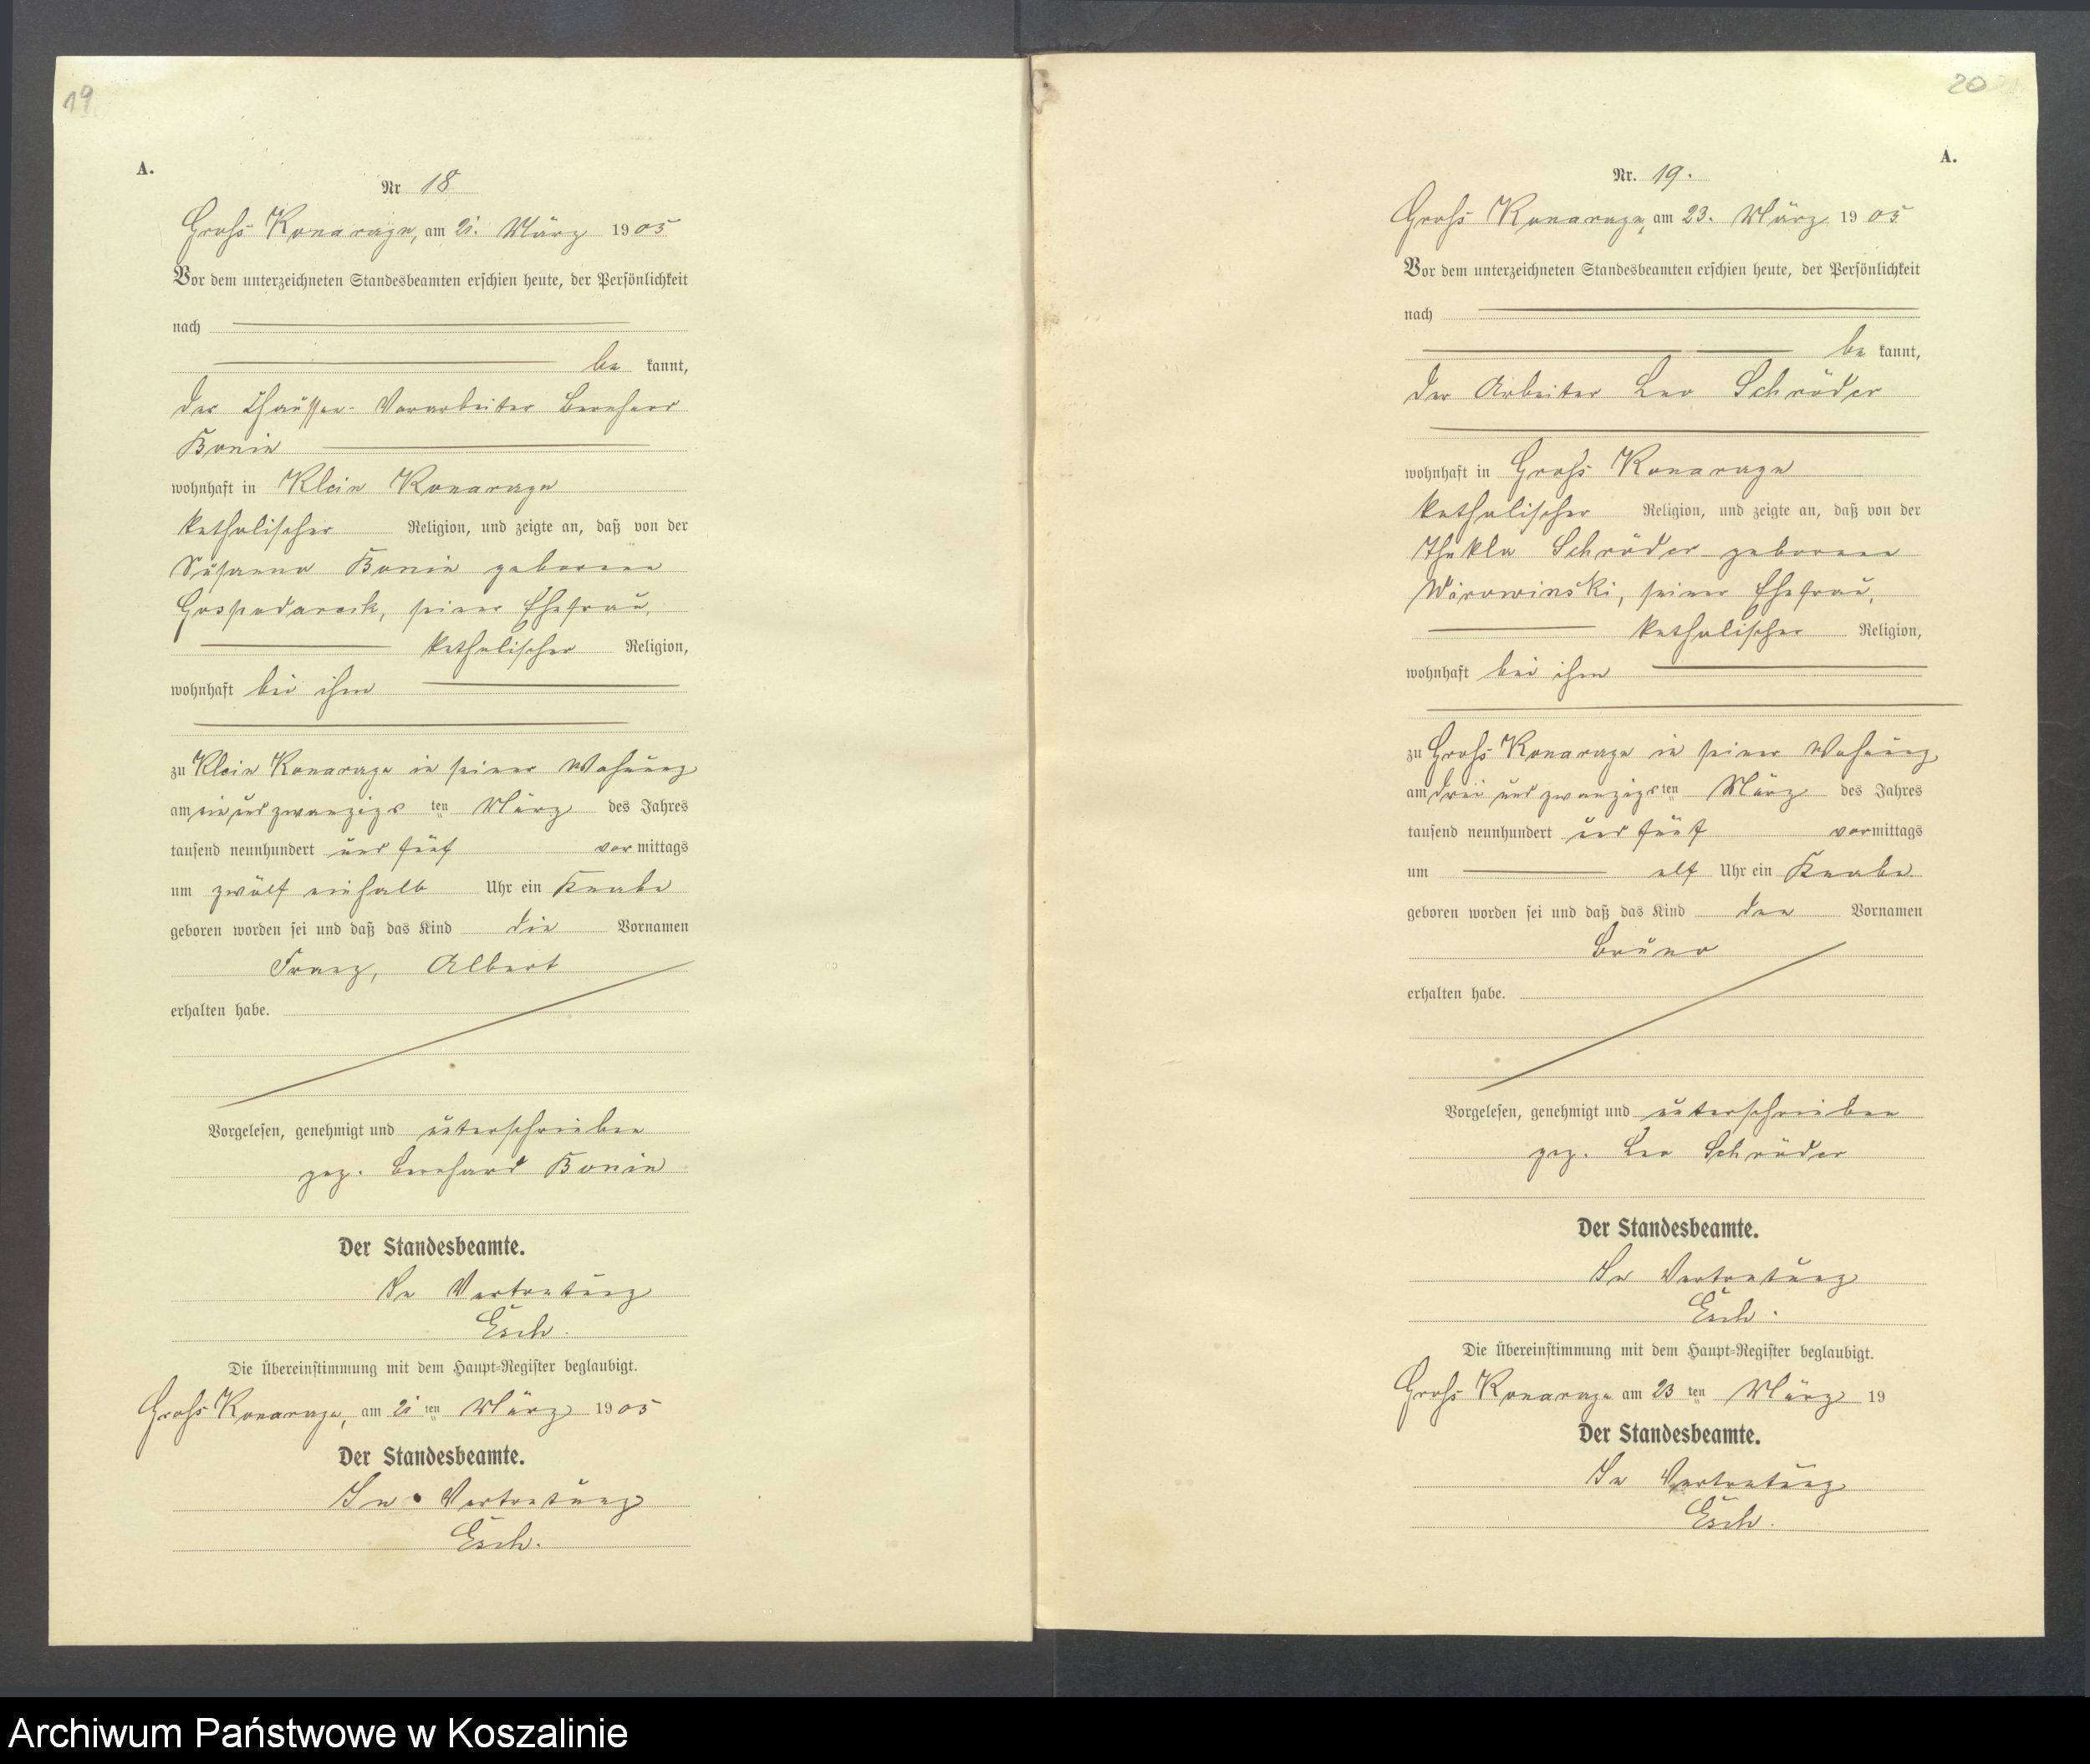 19
A.
Nr 18
Gross Konarczyn, am 21. März 1905
Vor dem unterzeichneten Standesbeamten erschien heute, der Persönlichkeit
nach
be kannt,
der Chaussee-Vorarbeiter Bernhard
Bonin
wohnhaft in Klein Konarczyn
katholischer Religion, und zeigte an, daß von der
Susanna Bonin geborene
Gospodareck, seiner Ehefrau,
katholischer Religion,
wohnhaft bei ihm
zu Klein Konarczyn in seiner Wohnung
am einundzwanzigsten März des Jahres
tausend neunhundert und fünf vormittags
um zwölf einhalb Uhr ein Knabe
geboren worden sei und daß das Kind die Vornamen
Franz, Albert
erhalten habe.
Vorgelesen, genehmigt und unterschrieben
gez. Bernhard Bonin
Der Standesbeamte.
In Vertretung
Esch.
Die Übereinstimmung mit dem Haupt-Register beglaubigt.
Gross Konarczyn, am 21 ten März 1905
Der Standesbeamte.
In Vertretung
Esch.
20
A.
Nr. 19.
Gross Konarczyn, am 23. März 1905
Vor dem unterzeichneten Standesbeamten erschien heute, der Persönlichkeit
nach
be kannt,
der Arbeiter Leo Schröder
wohnhaft in Gross Konarczyn
katholischer Religion, und zeigte an, daß von der
Thekla Schröder geborene
Wirowinski, seiner Ehefrau,
katholischer Religion,
wohnhaft bei ihm
zu Gross Konarczyn in seiner Wohnung
am drei und zwanzigsten März des Jahres
tausend neunhundert und fünf vormittags
um elf Uhr ein Knabe
geboren worden sei und daß das Kind den Vornamen
Bruno
erhalten habe.
Vorgelesen, genehmigt und unterschrieben
gez. Leo Schröder
Der Standesbeamte.
In Vertretung
Esch.
Die Übereinstimmung mit dem Haupt-Register beglaubigt.
Gross Konarczyn am 23 ten März 19
Der Standesbeamte.
In Vertretung
Esch.
Archiwum Państwowe w Koszalinie